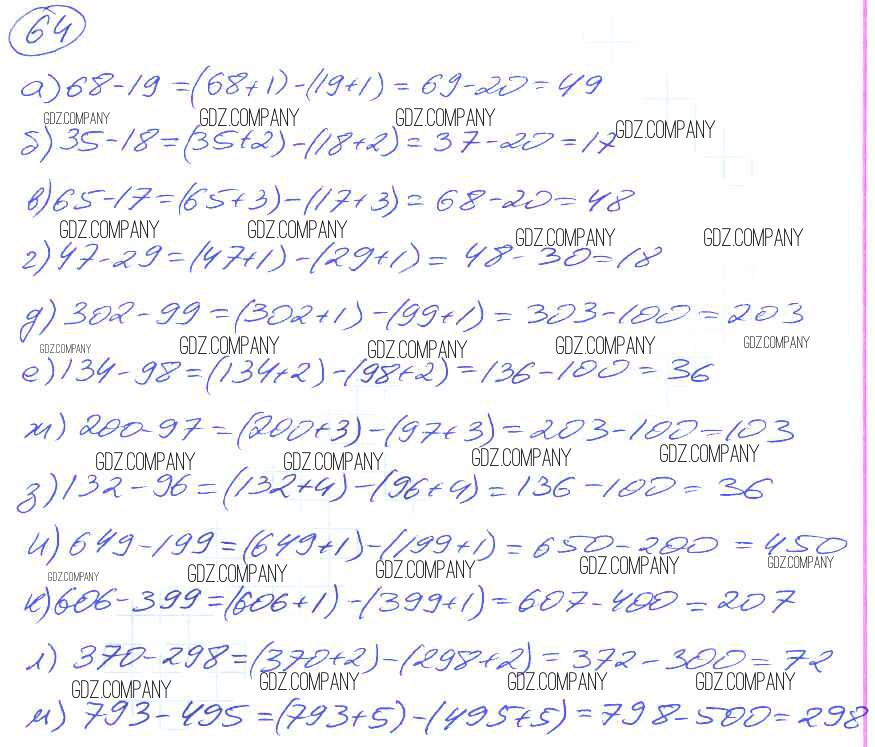 64
а) 68-19 = (68+1)-(19+1) = 69-20 = 49
GDZ.COMPANY GDZ.COMPANY GDZ.COMPANY GDZ.COMPANY
б) 35-18 = (35+2)-(18+2) = 37-20 = 17
в) 65-17 = (65+3)-(17+3) = 68-20 = 48
GDZ.COMPANY GDZ.COMPANY GDZ.COMPANY GDZ.COMPANY
г) 47-29 = (47+1)-(29+1) = 48-30 = 18
д) 302-99 = (302+1)-(99+1) = 303-100 = 203
GDZ.COMPANY GDZ.COMPANY GDZ.COMPANY GDZ.COMPANY GDZ.COMPANY
е) 134-98 = (134+2)-(98+2) = 136-100 = 36
ж) 200-97 = (200+3)-(97+3) = 203-100 = 103
GDZ.COMPANY GDZ.COMPANY GDZ.COMPANY GDZ.COMPANY
з) 132-96 = (132+4)-(96+4) = 136-100 = 36
и) 649-199 = (649+1)-(199+1) = 650-200 = 450
GDZ.COMPANY GDZ.COMPANY GDZ.COMPANY GDZ.COMPANY GDZ.COMPANY
к) 606-399 = (606+1)-(399+1) = 607-400 = 207
л) 370-298 = (370+2)-(298+2) = 372-300 = 72
GDZ.COMPANY GDZ.COMPANY GDZ.COMPANY GDZ.COMPANY
м) 793-495 = (793+5)-(495+5) = 798-500 = 298